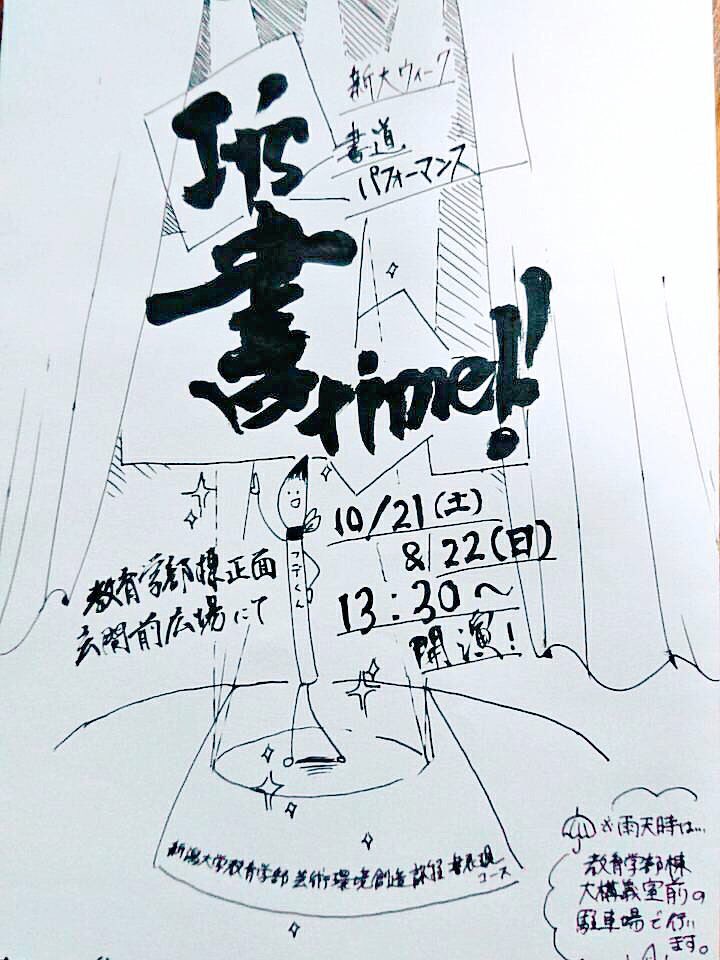 新大ウィーク
書道
パフォーマンス
It's
書
time!!
10/21(土)
& 22(日)
13:30〜
開演!
フデくん
教育学部棟正面
玄関前広場にて
新潟大学教育学部 芸術環境創造課程 書表現
コース
※雨天時は...
教育学部棟
大講義室前の
駐車場で行い
ます。